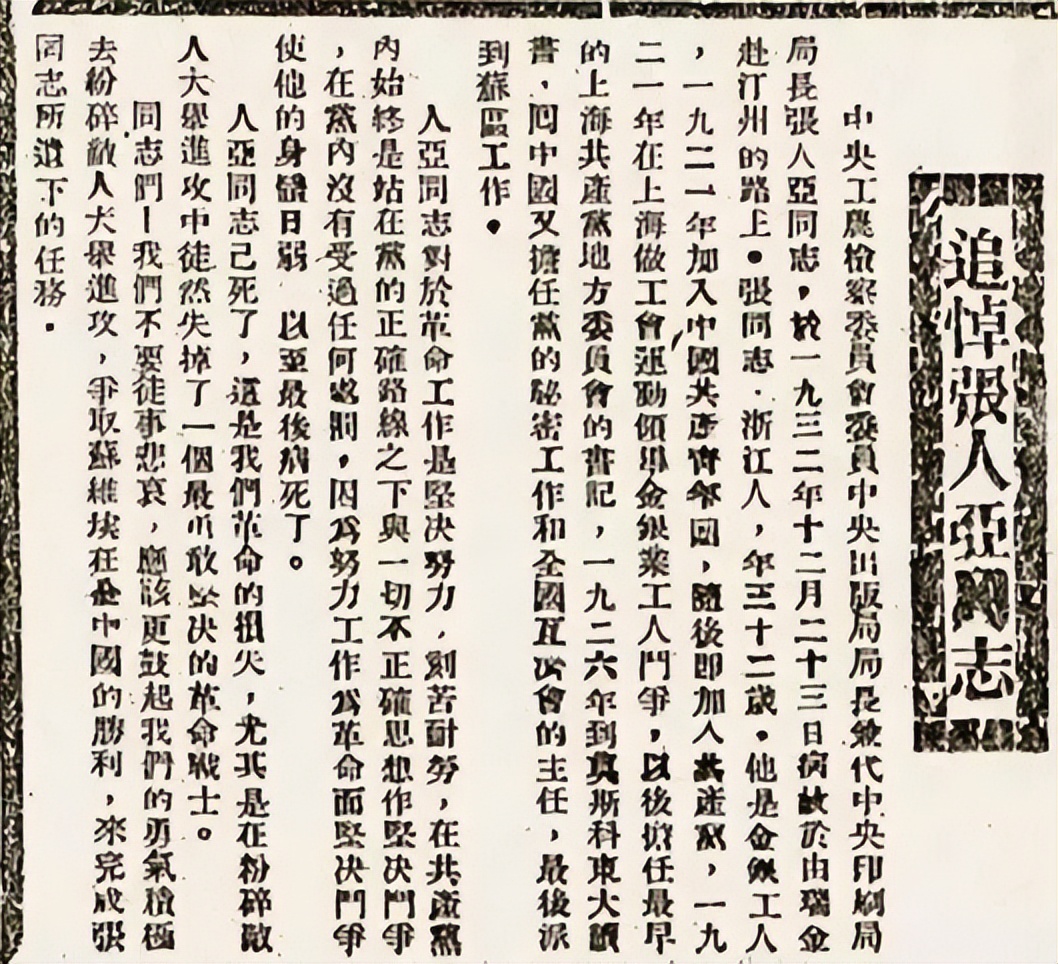 追悼張人亞同志
中央工農檢察委員會委員中央出版局局長兼代中央印刷局
局長張人亞同志，於一九三二年十二月二十三日病故於由瑞金
赴汀州的路上。張同志．浙江人，年三十二歲。他是金銀工人
，一九二一年加入中國共產青年團，隨後即加入共產黨，一九
二一年在上海做工會運動領導金銀業工人鬥爭，以後擔任最早
的上海共產黨地方委員會的書記，一九二六年到莫斯科東大讀
書，回中國又擔任黨的秘密工作和全國互濟會的主任，最後派
到蘇區工作。
人亞同志對於革命工作是堅決努力，刻苦耐勞，在共產黨
內始終是站在黨的正確路線之下與一切不正確思想作堅決鬥爭
，在黨內沒有受過任何處罰，因為努力工作為革命而堅決鬥爭
使他的身體日弱 以至最後病死了。
人亞同志己死了，這是我們革命的損失，尤其是在粉碎敵
人大舉進攻中徒然失掉了一個最勇敢堅決的革命戰士。
同志們！我們不要徒事悲哀，應該更鼓起我們的勇氣積極
去粉碎敵人大舉進攻，爭取蘇維埃在全中國的勝利，來完成張
同志所遺下的任務．